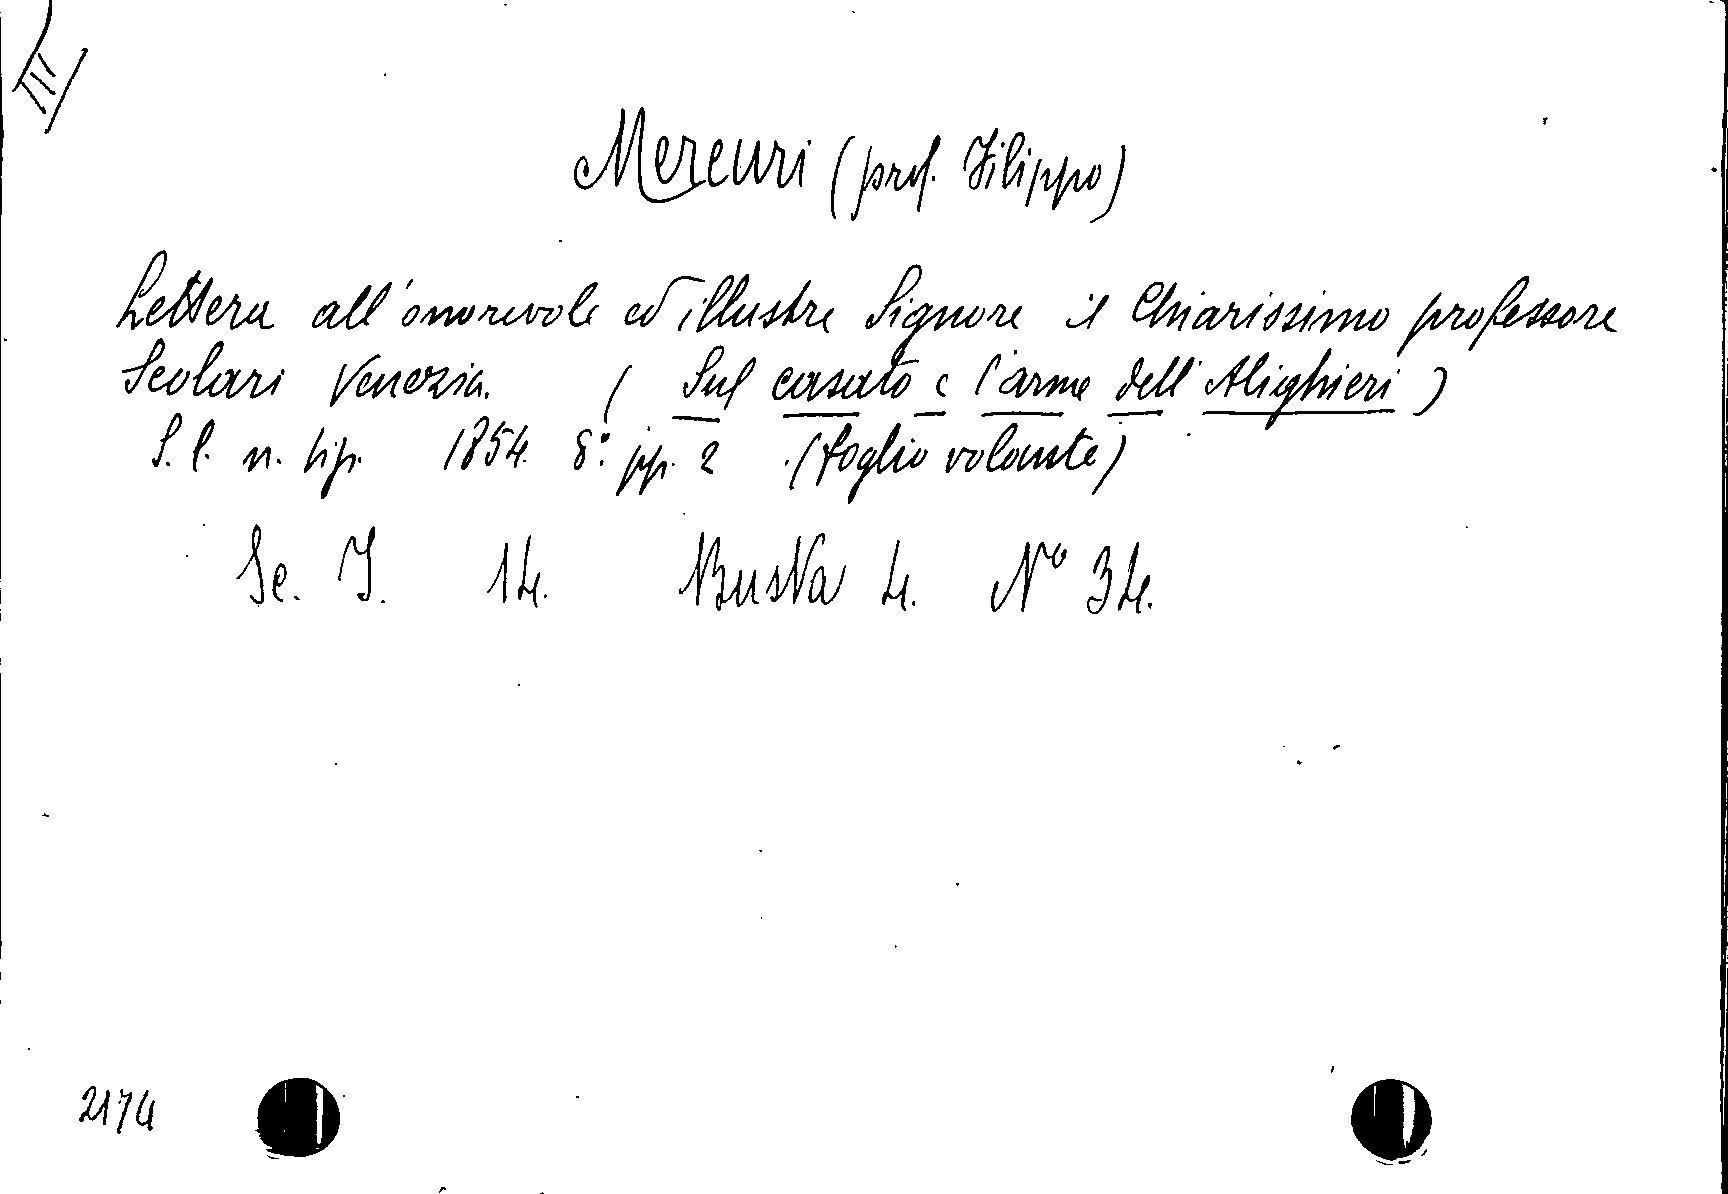 III
Mercuri (prof. Filippo)
Lettera all'onorevole ed illustre Signore il Chiarissimo professore
Scolari Venezia. (Sul casato e l'arme dell'Alighieri)
S. l. n. tip. 1854. 8.° pp. 2 (foglio volante)
Sc. I. 14. Busta 4. N° 34.
2174